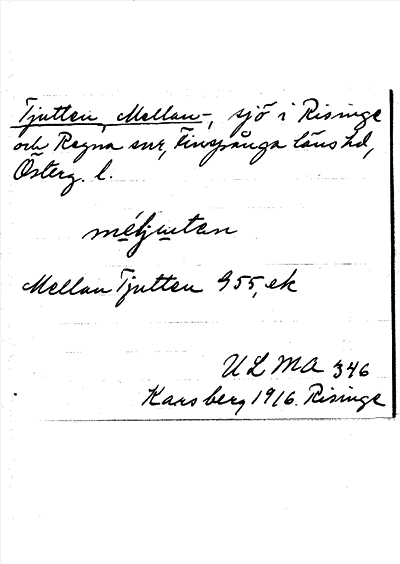 Tjutten, Mellan-, sjö i Risinge
och Regna snr, Finspånga läns hd,
Österg. l.
méljutan
Mellan Tjutten G55, ek
ULMA 346
Karsberg 1916. Risinge